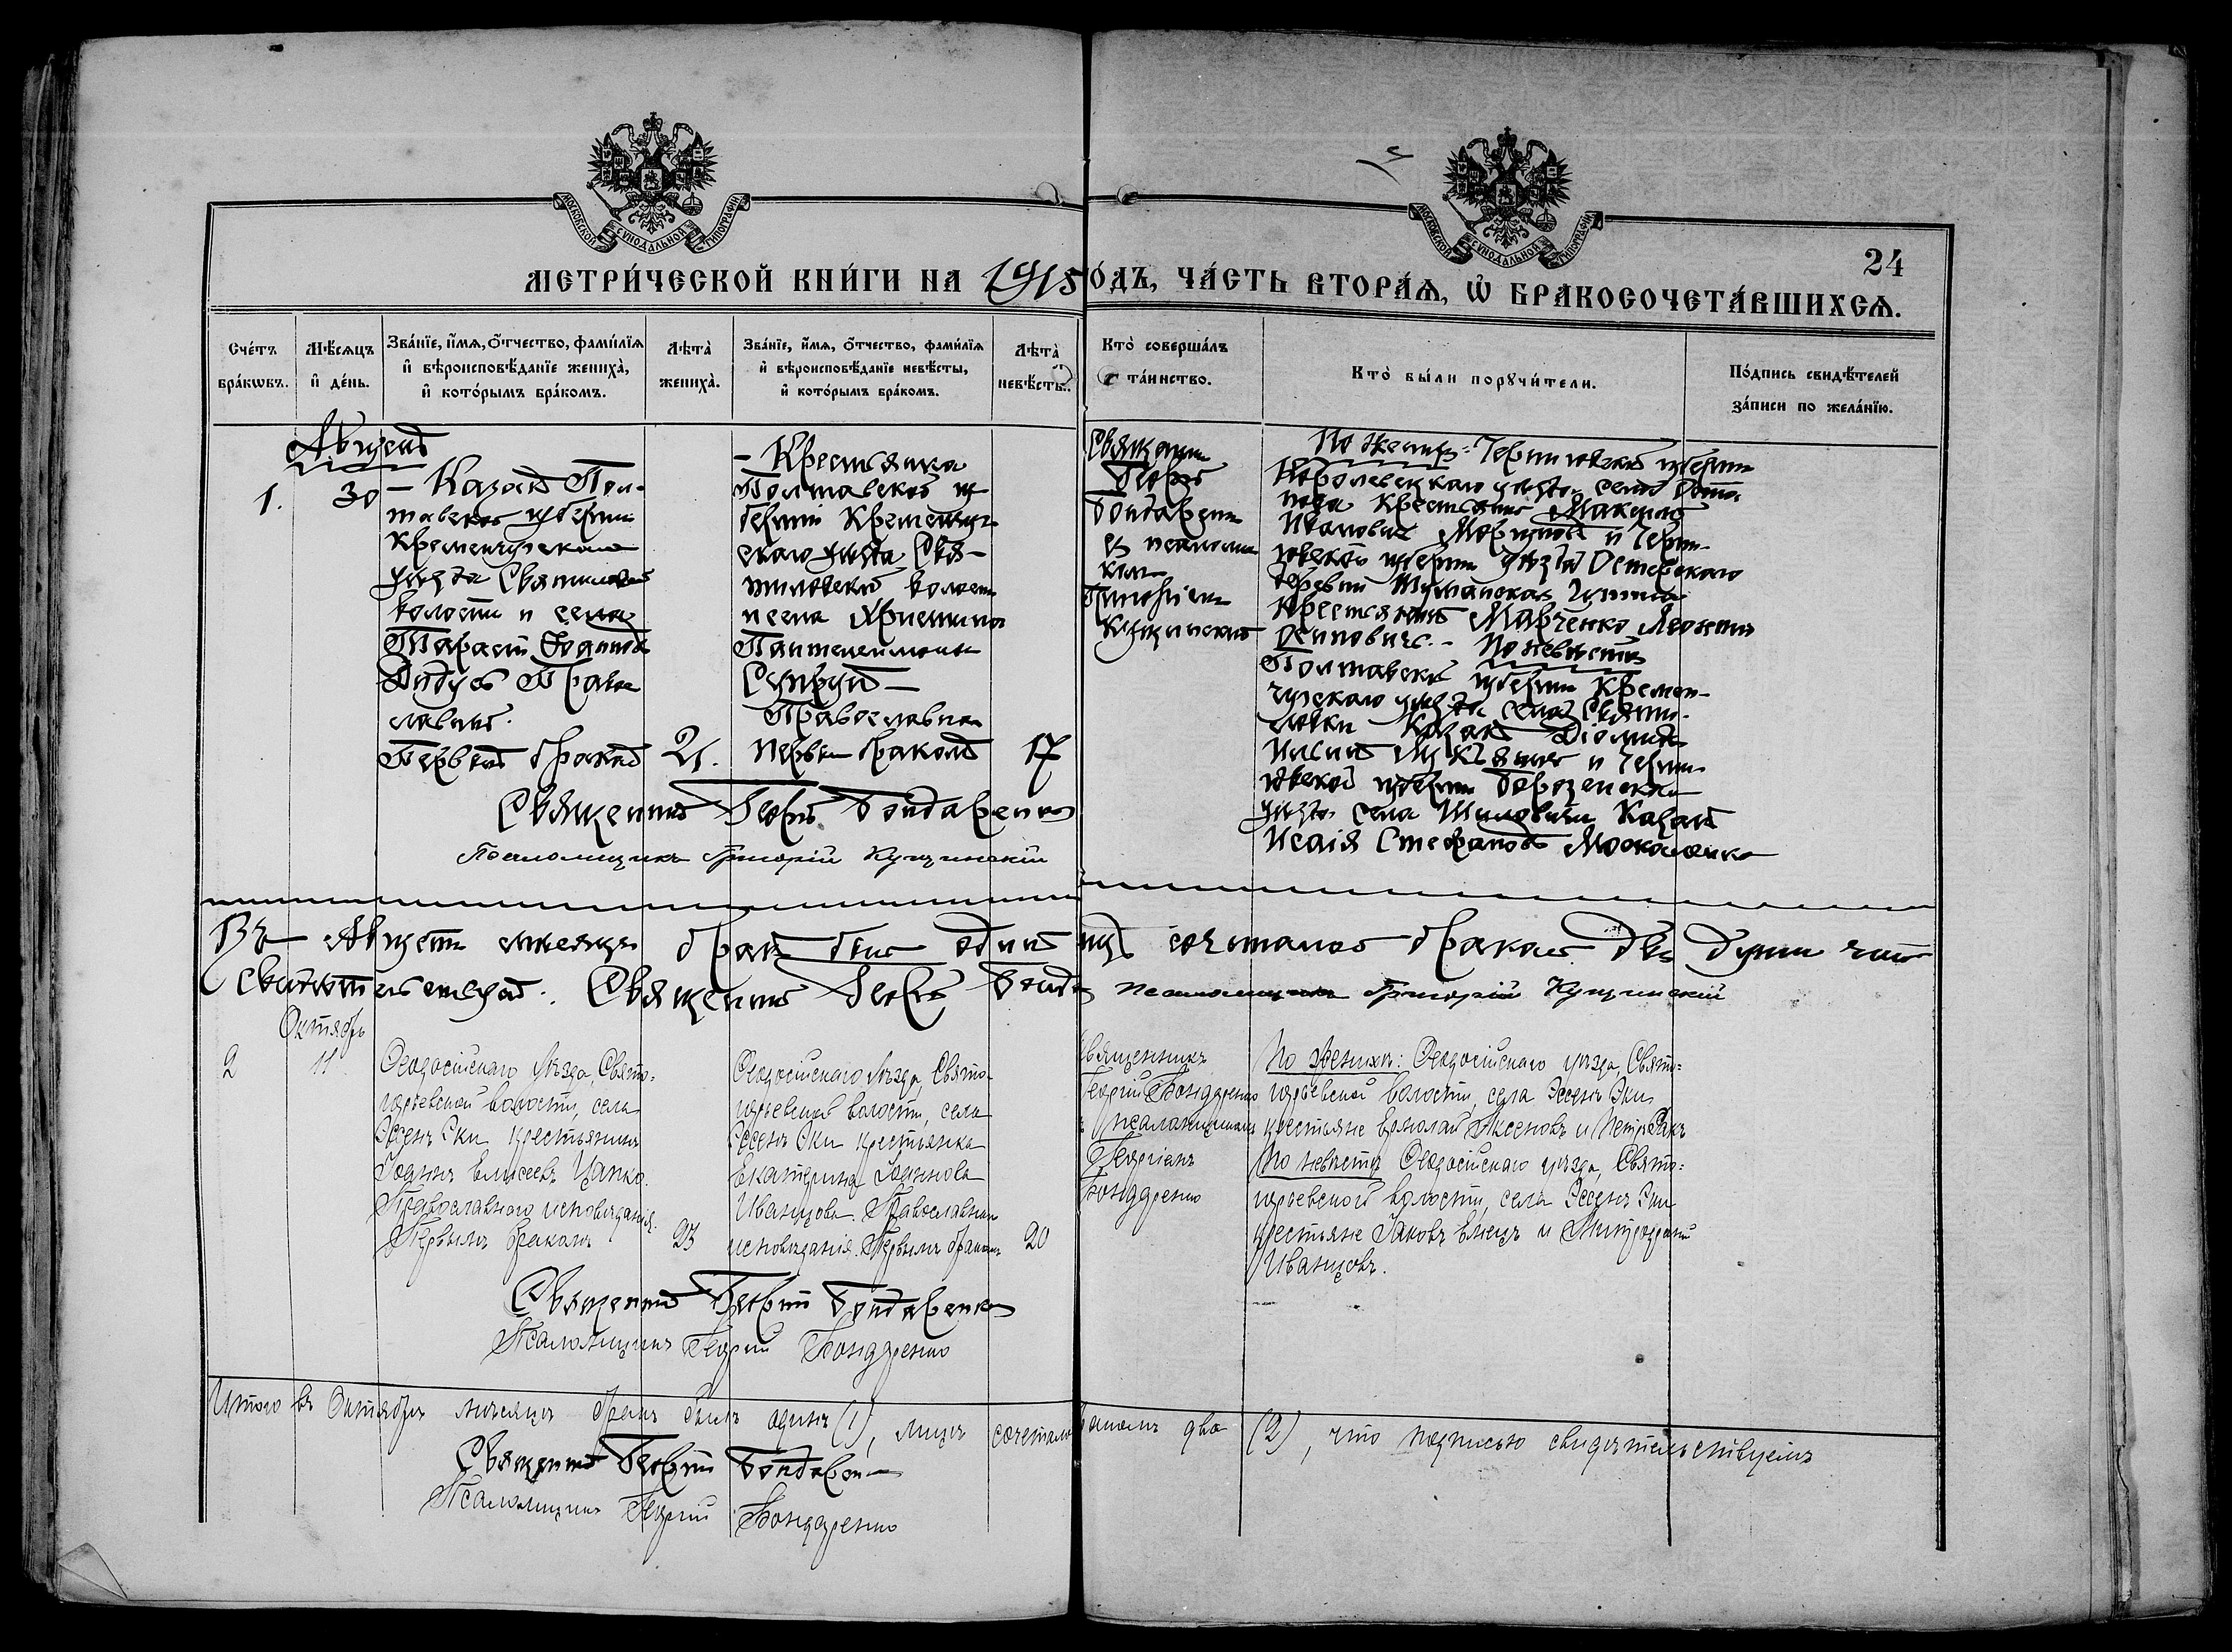 МОСКОВСКОЙ СѴНОДАЛЬНОЙ ТИПОГРАФІИ
МОСКОВСКОЙ СѴНОДАЛЬНОЙ ТИПОГРАФІИ
24
МЕТРИ́ЧЕСКОЙ КНИ́ГИ НА 1915 ГО́ДЪ, ЧА́СТЬ ВТОРА́Я, Ѡ БРАКОСОЧЕТА́ВШИХСЯ.
Сче́тъ бра́кѡвъ.
Мѣ́сяцъ и де́нь.
Зва́нїе, и́мя, о́тчество, фами́лїя и вѣроисповѣ́данїе жениха̀, и кото́рымъ бра́комъ.
Лѣта̀ жениха̀.
Зва́нїе, и́мя, о́тчество, фами́лїя и вѣроисповѣ́данїе невѣ́сты, и кото́рымъ бра́комъ.
Лѣта̀ невѣ́сты.
Кто̀ соверша́лъ та́инство.
Кто̀ бы́ли поручи́тели.
По́дпись свидѣ́телей за́писи по жела́нїю.
Августъ
1.
30
Казакъ Пол-
тавской губерніи
Кременчугскаго
уѣзда Святиловской
волости и села
Тарасій
Дидусь Право
славный.
Первымъ бракомъ
21.
Крестьянка
Полтавской гу-
берніи Кременчуг-
скаго уѣзда Свя-
тиловской волости
и села Христина
Пантелеймонова
Супрун
Православная
Первымъ бракомъ
17
Священникъ
Георгій
Бондаренко
съ псаломщи
комъ
Григоріемъ
Кущинскимъ
По женихѣ: Черниговской губерніи
Кролевецкаго уѣзда села
крестьянинъ Максимъ
Ивановичъ и Черни-
говской губерніи уѣзда Остерскаго
деревни
Крестьянинъ Марченко Леонтій
По невѣстѣ
Полтавской губерніи Кремен-
чугскаго уѣзда села Святи-
ловки Казакъ Діомидъ
и Черни-
говской губерніи Борзенскаго
уѣзда села Шиловичи Казакъ
Исаія Стефановъ Москаленко
Священникъ Георгій Бондаренко
Псаломщикъ Григорій Кущинскій
Въ Августѣ мѣсяцѣ бракъ былъ одинъ сочеталось бракомъ двѣ души что
свидѣтельствуютъ. Священникъ Георгій Бонд Псаломщикъ Григорій Кущинскій
Октябрь
2
11
Ѳеодосійскаго уѣзда, Свято=
горьевской волости, села
Эссенъ Эки крестьянинъ
Іоаннъ Елисеевъ Цапко.
Православнаго исповѣданія.
Первымъ бракомъ
23
Ѳеодосійскаго уѣзда, Свято-
горьевской волости, села
Эссенъ Эки крестьянка
Екатерина Іоаннова
Иванцова. Православнаго
исповѣданія. Первымъ бракомъ
20
Священникъ
Георгій Бондаренко
съ псаломщикомъ
Георгіемъ
Бондаренко
По женихѣ: Ѳеодосійскаго уѣзда, Свято=
горьевской волости, села Эссенъ Эки
крестьяне Ермолай Аксеновъ и Петръ
По невѣстѣ Ѳеодосійскаго уѣзда, Свято=
горьевской волости, села Эссенъ Эки
крестьяне Іаковъ и Митрофаній
Иванцовъ.
Священникъ Георгій Бондаренко
Псаломщикъ Георгій Бондаренко
Итого въ Октябрѣ мѣсяцѣ бракъ былъ одинъ (1), лицъ сочеталось бракомъ два (2), что подписью свидѣтельствуемъ
Священникъ Георгій Бондаренко
Псаломщикъ Георгій Бондаренко